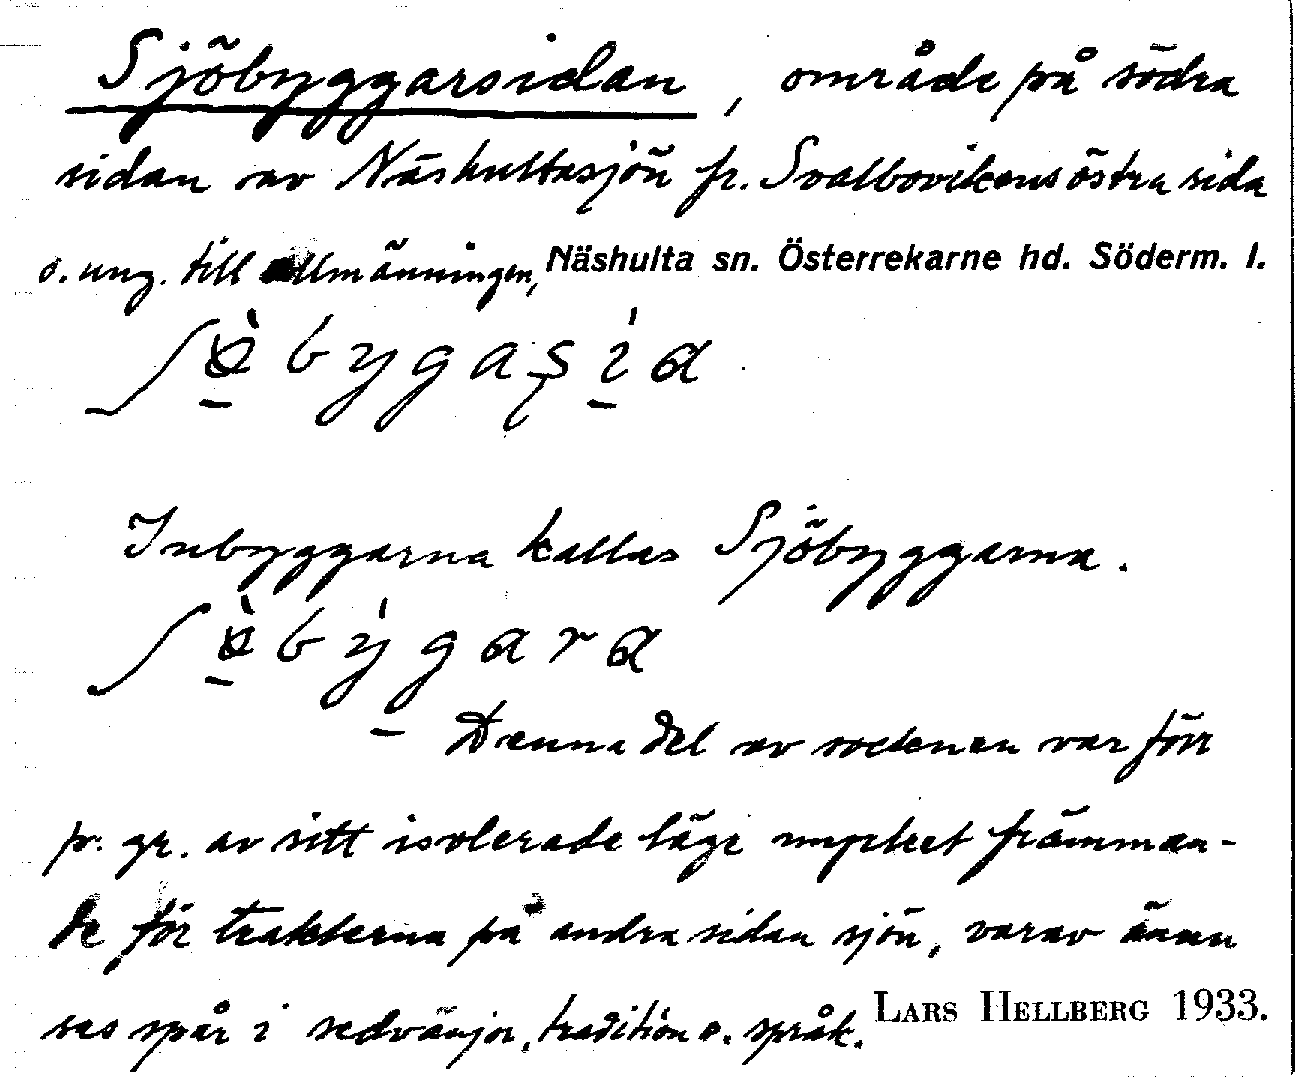 Sjöbyggarsidan, område på södra
sidan av Näshultasjön fr. Svalbovikens östra sida
o. ung. till allmänningen, Näshulta sn. Österrekarne hd. Söderm. l.
Inbyggarna kallas Sjöbyggarna.
Denna del av socknen var förr
p. gr. av sitt isolerade läge mycket främman-
de för trakterna på andra sidan sjön, varav ännu
ses spår i sedvänjor, tradition o. språk. LARS HELLBERG 1933.